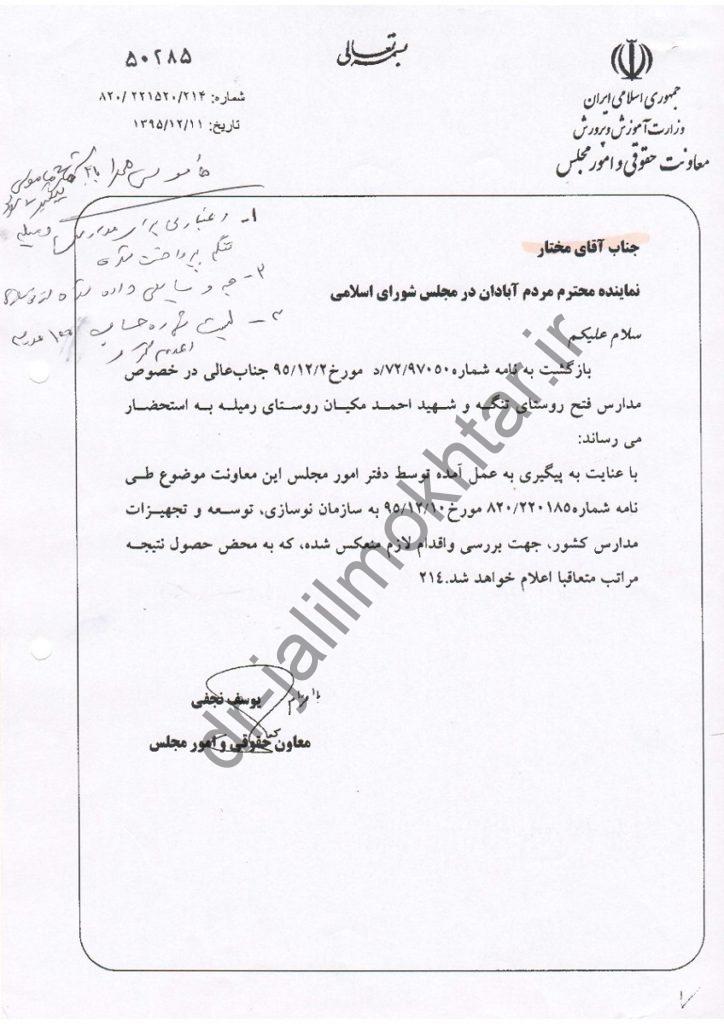 بسمه تعالی
جمهوری اسلامی ایران
وزارت آموزش و پرورش
معاونت حقوقی و امور مجلس
۵۰۲۸۵
شماره: ۸۲۰/۲۲۱۵۲۰/۲۱۴
تاریخ: ۱۳۹۵/۱۲/۱۱
۱- اعتباری برای مدارس
پرداخت شده
۲- چه وسایلی داده شده
۳- لیست شماره حساب ۱۰۰ مدرسه
جناب آقای مختار
نماینده محترم مردم آبادان در مجلس شورای اسلامی
سلام علیکم
بازگشت به نامه شماره۷۲/۹۷۰۵۰/د مورخ۹۵/۱۲/۲ جناب‌عالی در خصوص
مدارس فتح روستای تنگه و شهید احمد مکیان روستای رمیله به استحضار
می رساند:
با عنایت به پیگیری به عمل آمده توسط دفتر امور مجلس این معاونت موضوع طی
نامه شماره۸۲۰/۲۲۰۱۸۵ مورخ۹۵/۱۲/۱۰ به سازمان نوسازی، توسعه و تجهیزات
مدارس کشور، جهت بررسی واقدام لازم منعکس شده، که به محض حصول نتیجه
مراتب متعاقبا اعلام خواهد شد.۲۱۴
یوسف نجفی
معاون حقوقی و امور مجلس
dr-jalilmokhtar.ir